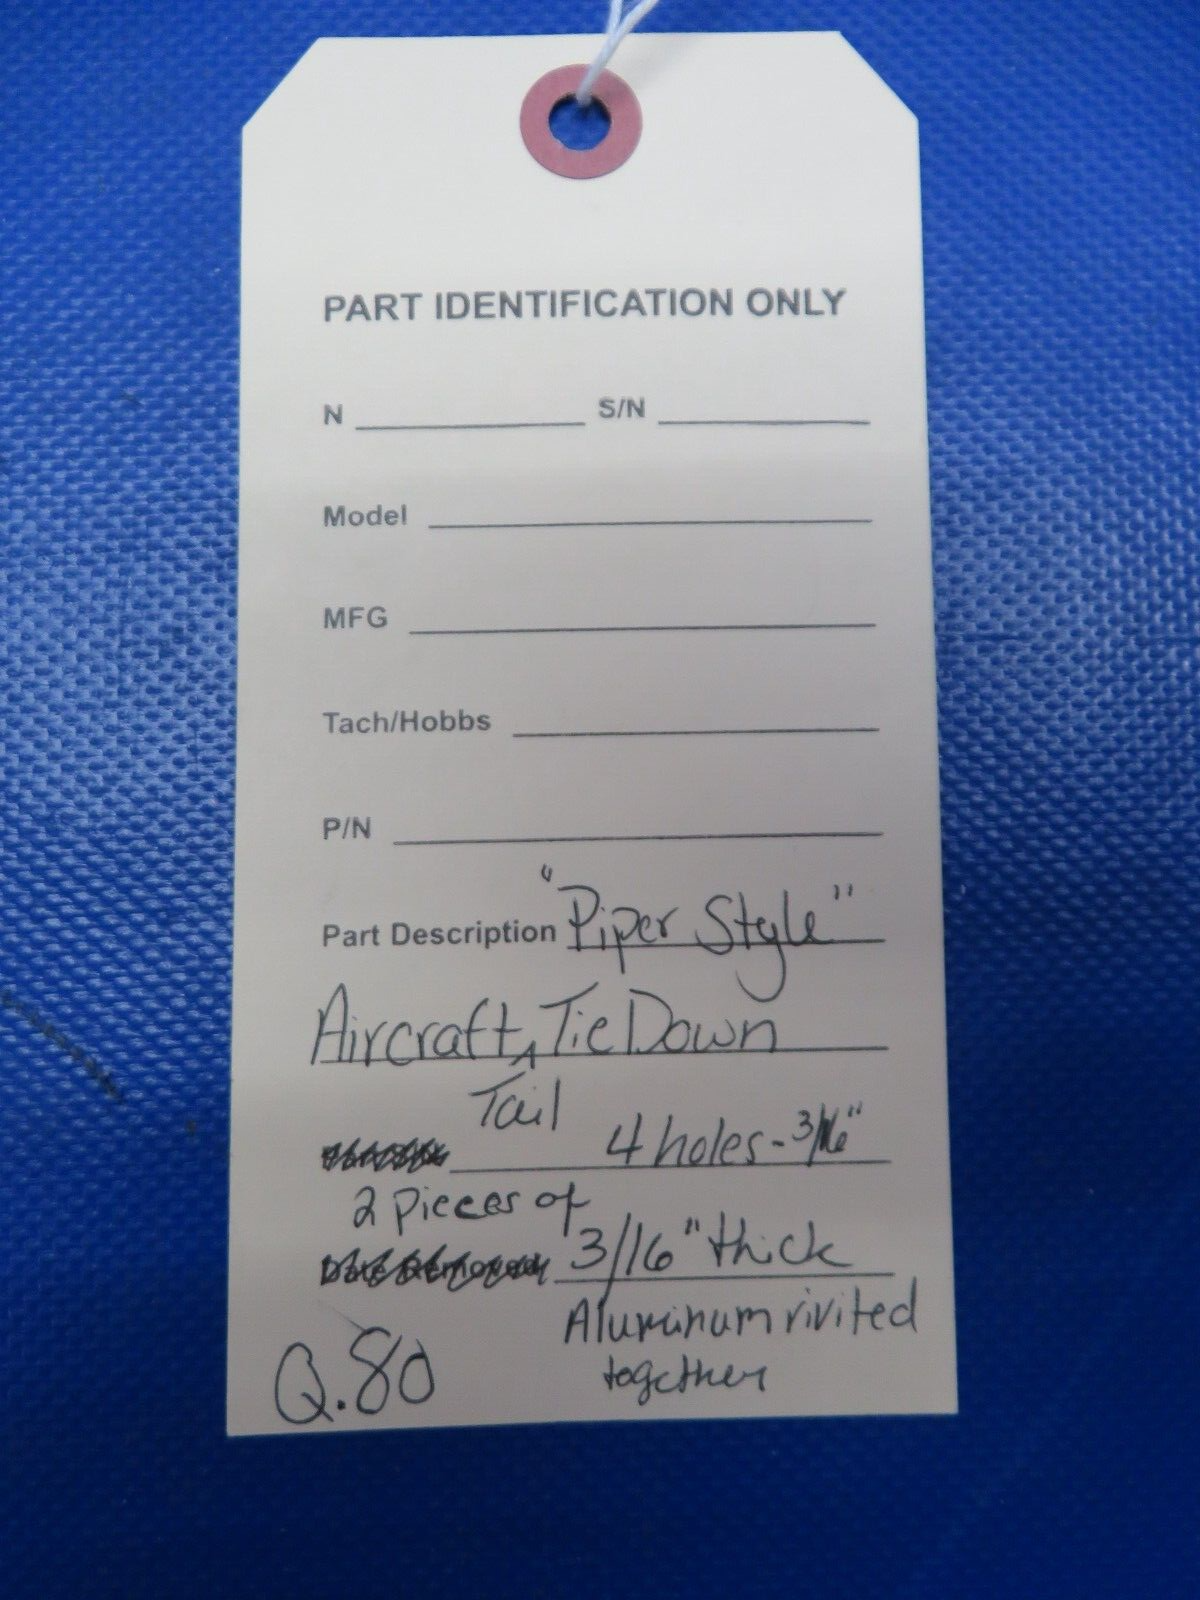 PART IDENTIFICATION ONLY
N S/N
Model
MFG
Tach/Hobbs
P/N
Part Description "Piper Style"
Aircraft ^ Tie Down
Tail
4 holes - 3/16"
2 pieces of
Date Removed 3/16" thick
Aluminum rivited
together
Q.80